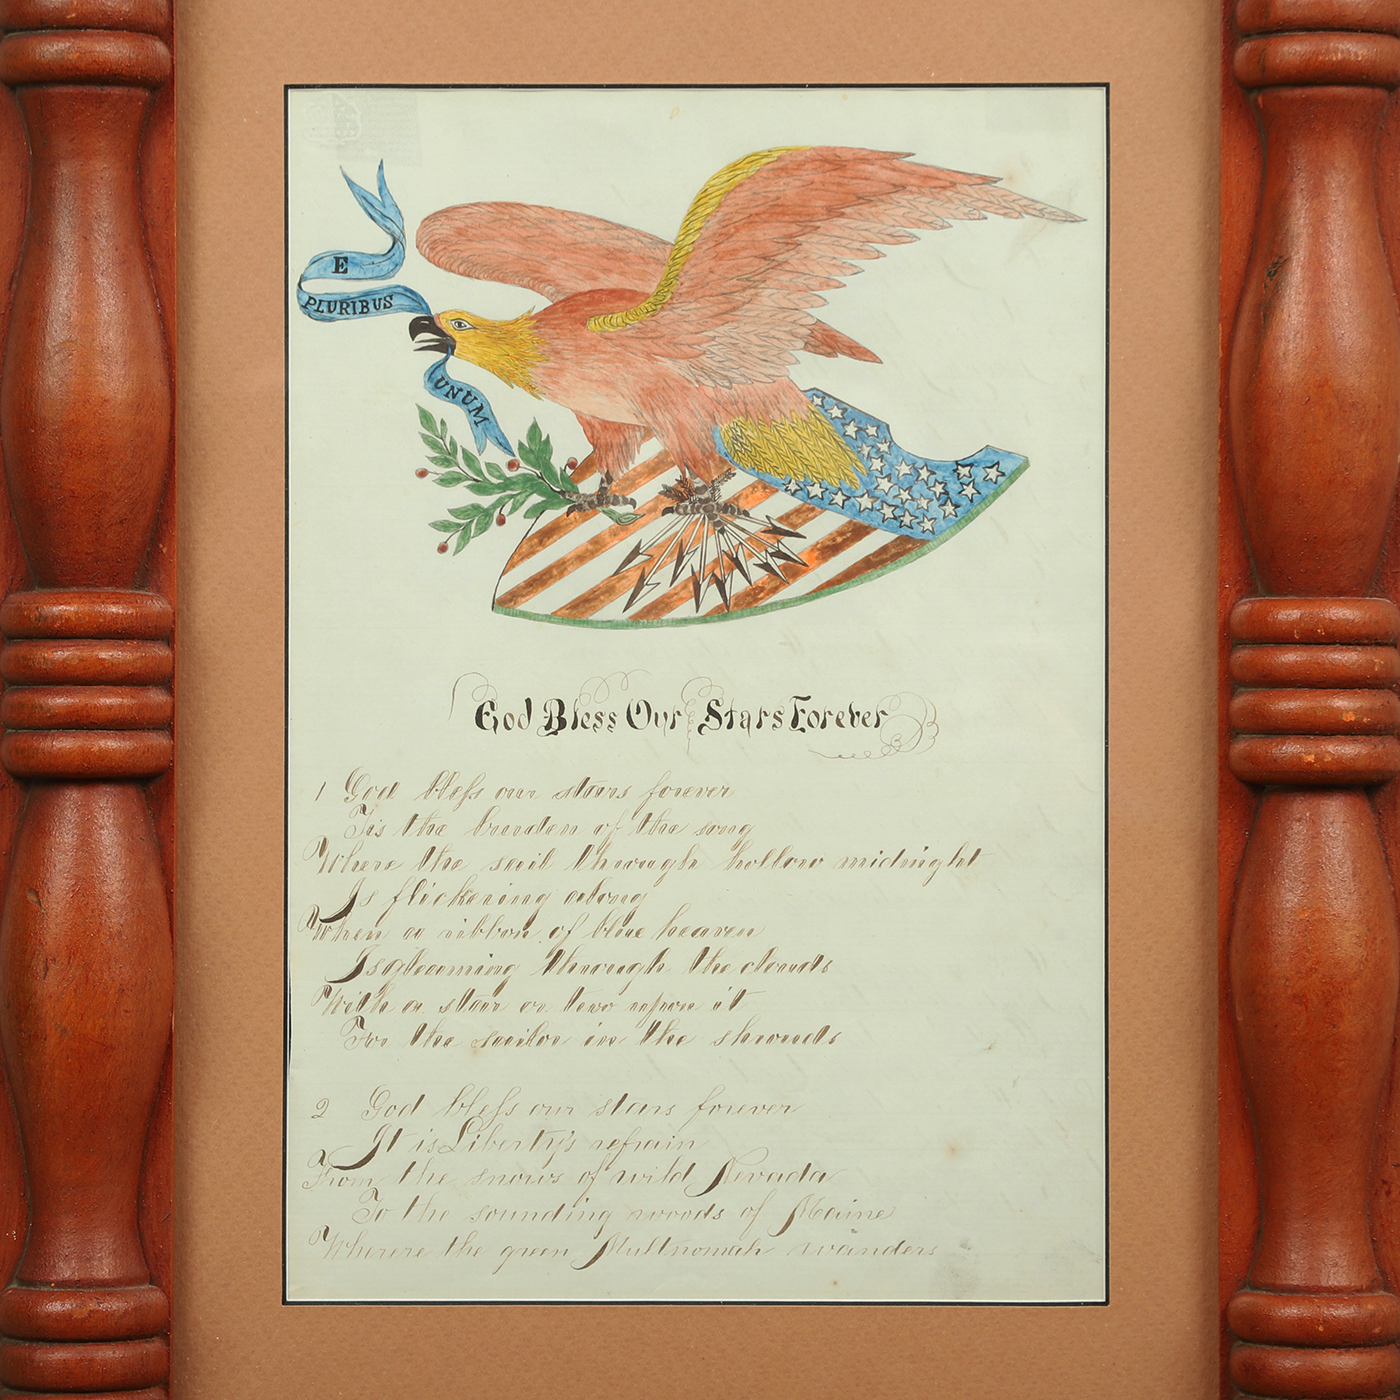 E
PLURIBUS
UNUM
God Bless Our Stars Forever
1 God bless our stars forever
Tis the burden of the song
Where the sail through hollow midnight
Is flickering along
When a ribbon of blue heaven
Is gleaming through the clouds
With a star or two upon it
For the sailor in the shrouds
2 God bless our stars forever
It is Liberty's refrain
From the snows of wild Nevada
To the sounding woods of Maine
Wherere the green Multnomah wanders